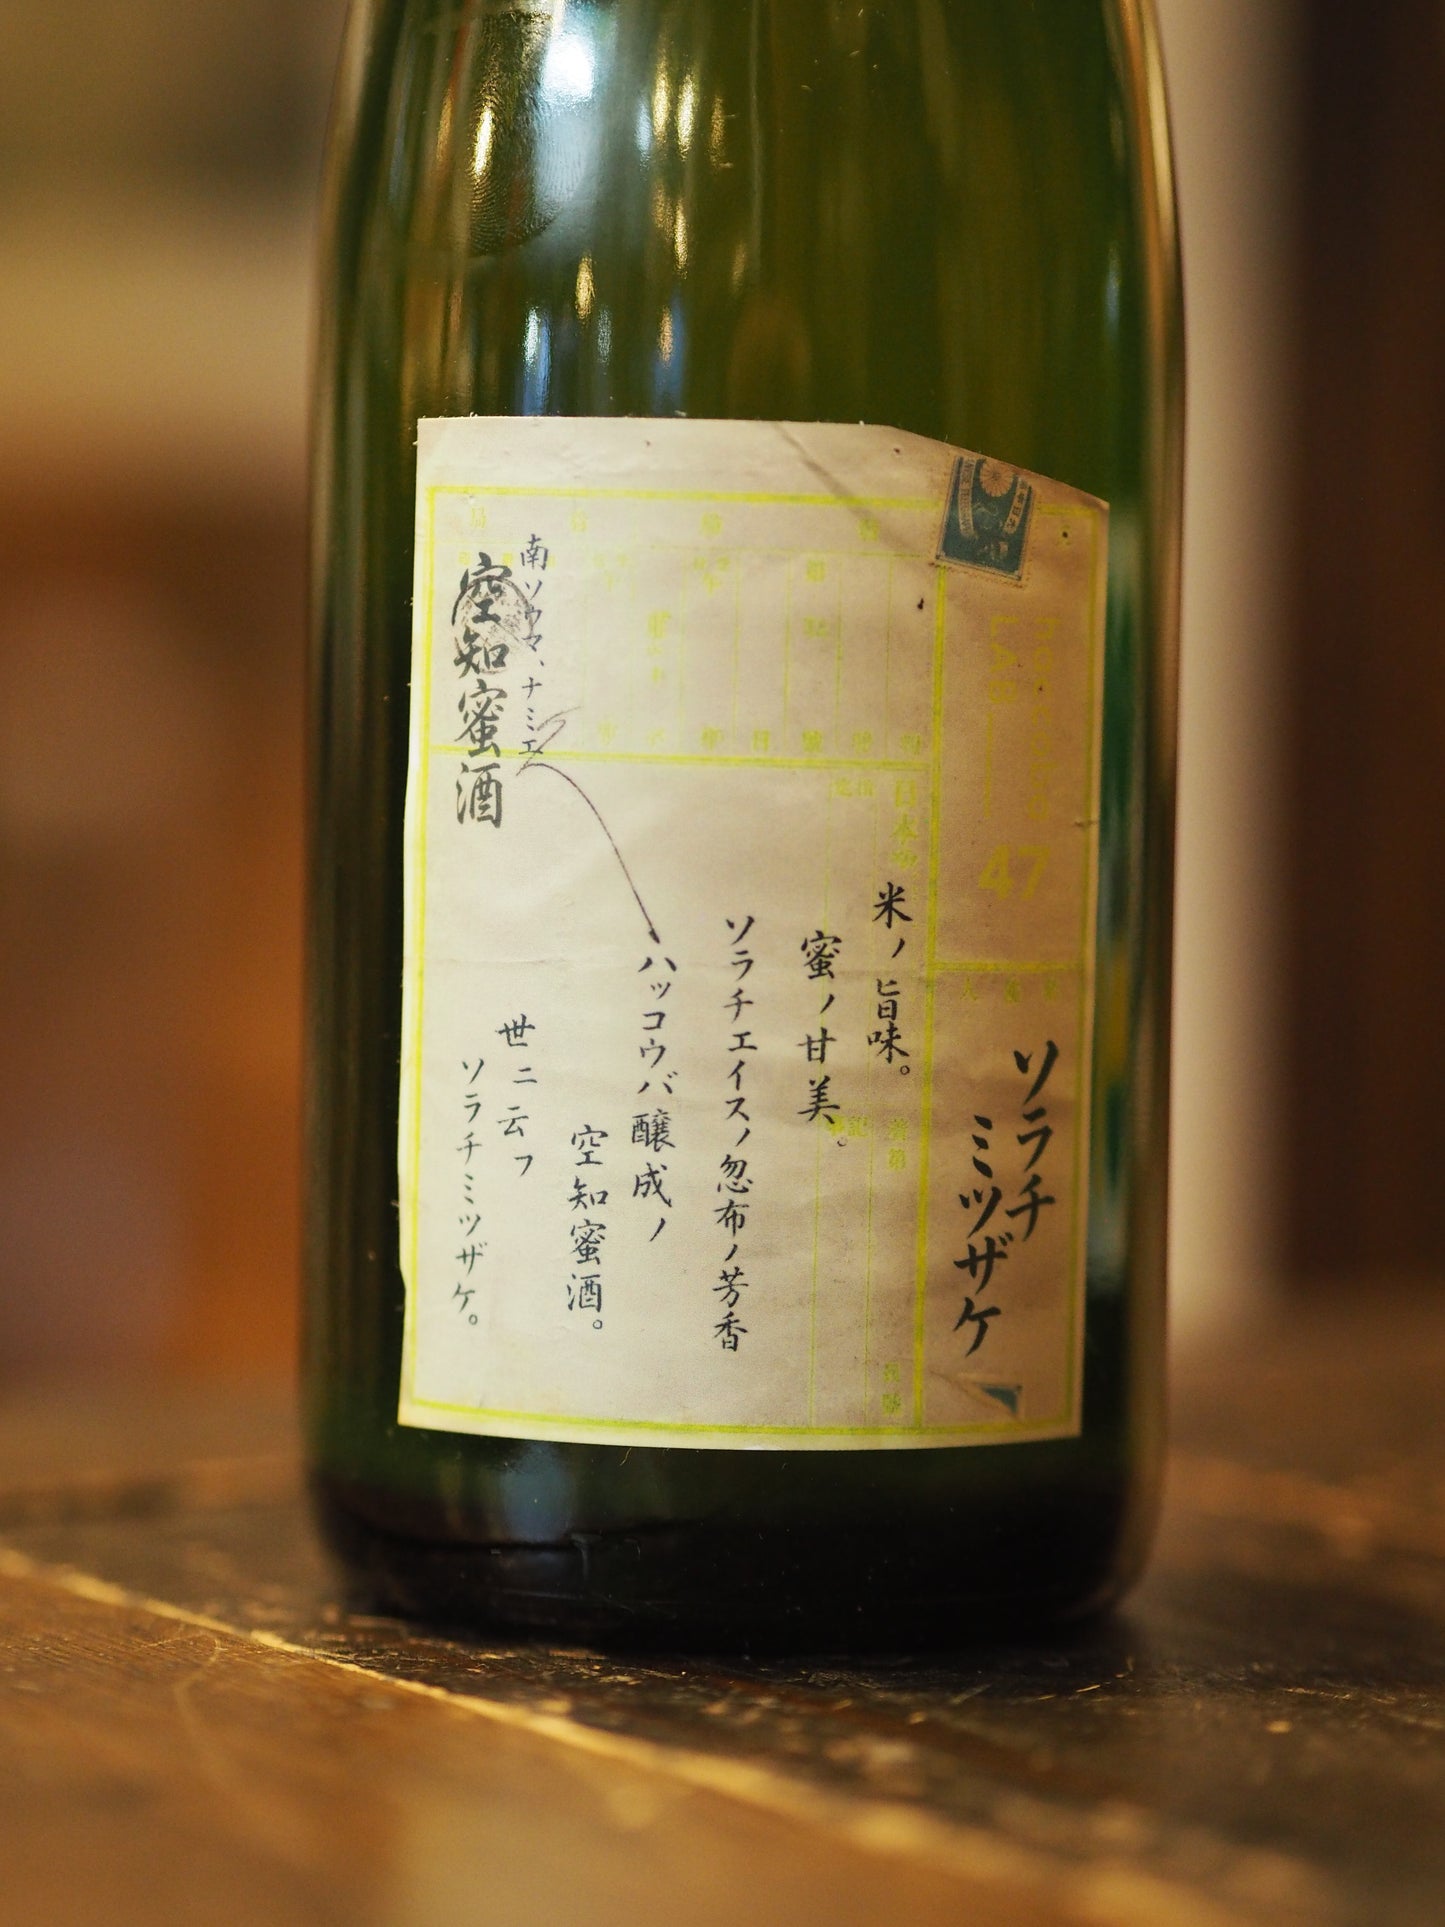 ソラチ
ミツザケ
米ノ旨味。
蜜ノ甘美。
ソラチエイスノ忽布ノ芳香
ハッコウバ醸成ノ
空知蜜酒。
世ニ云フ
ソラチミツザケ。
南ソウマ、ナミエ
空知蜜酒
haccoba
LAB
47